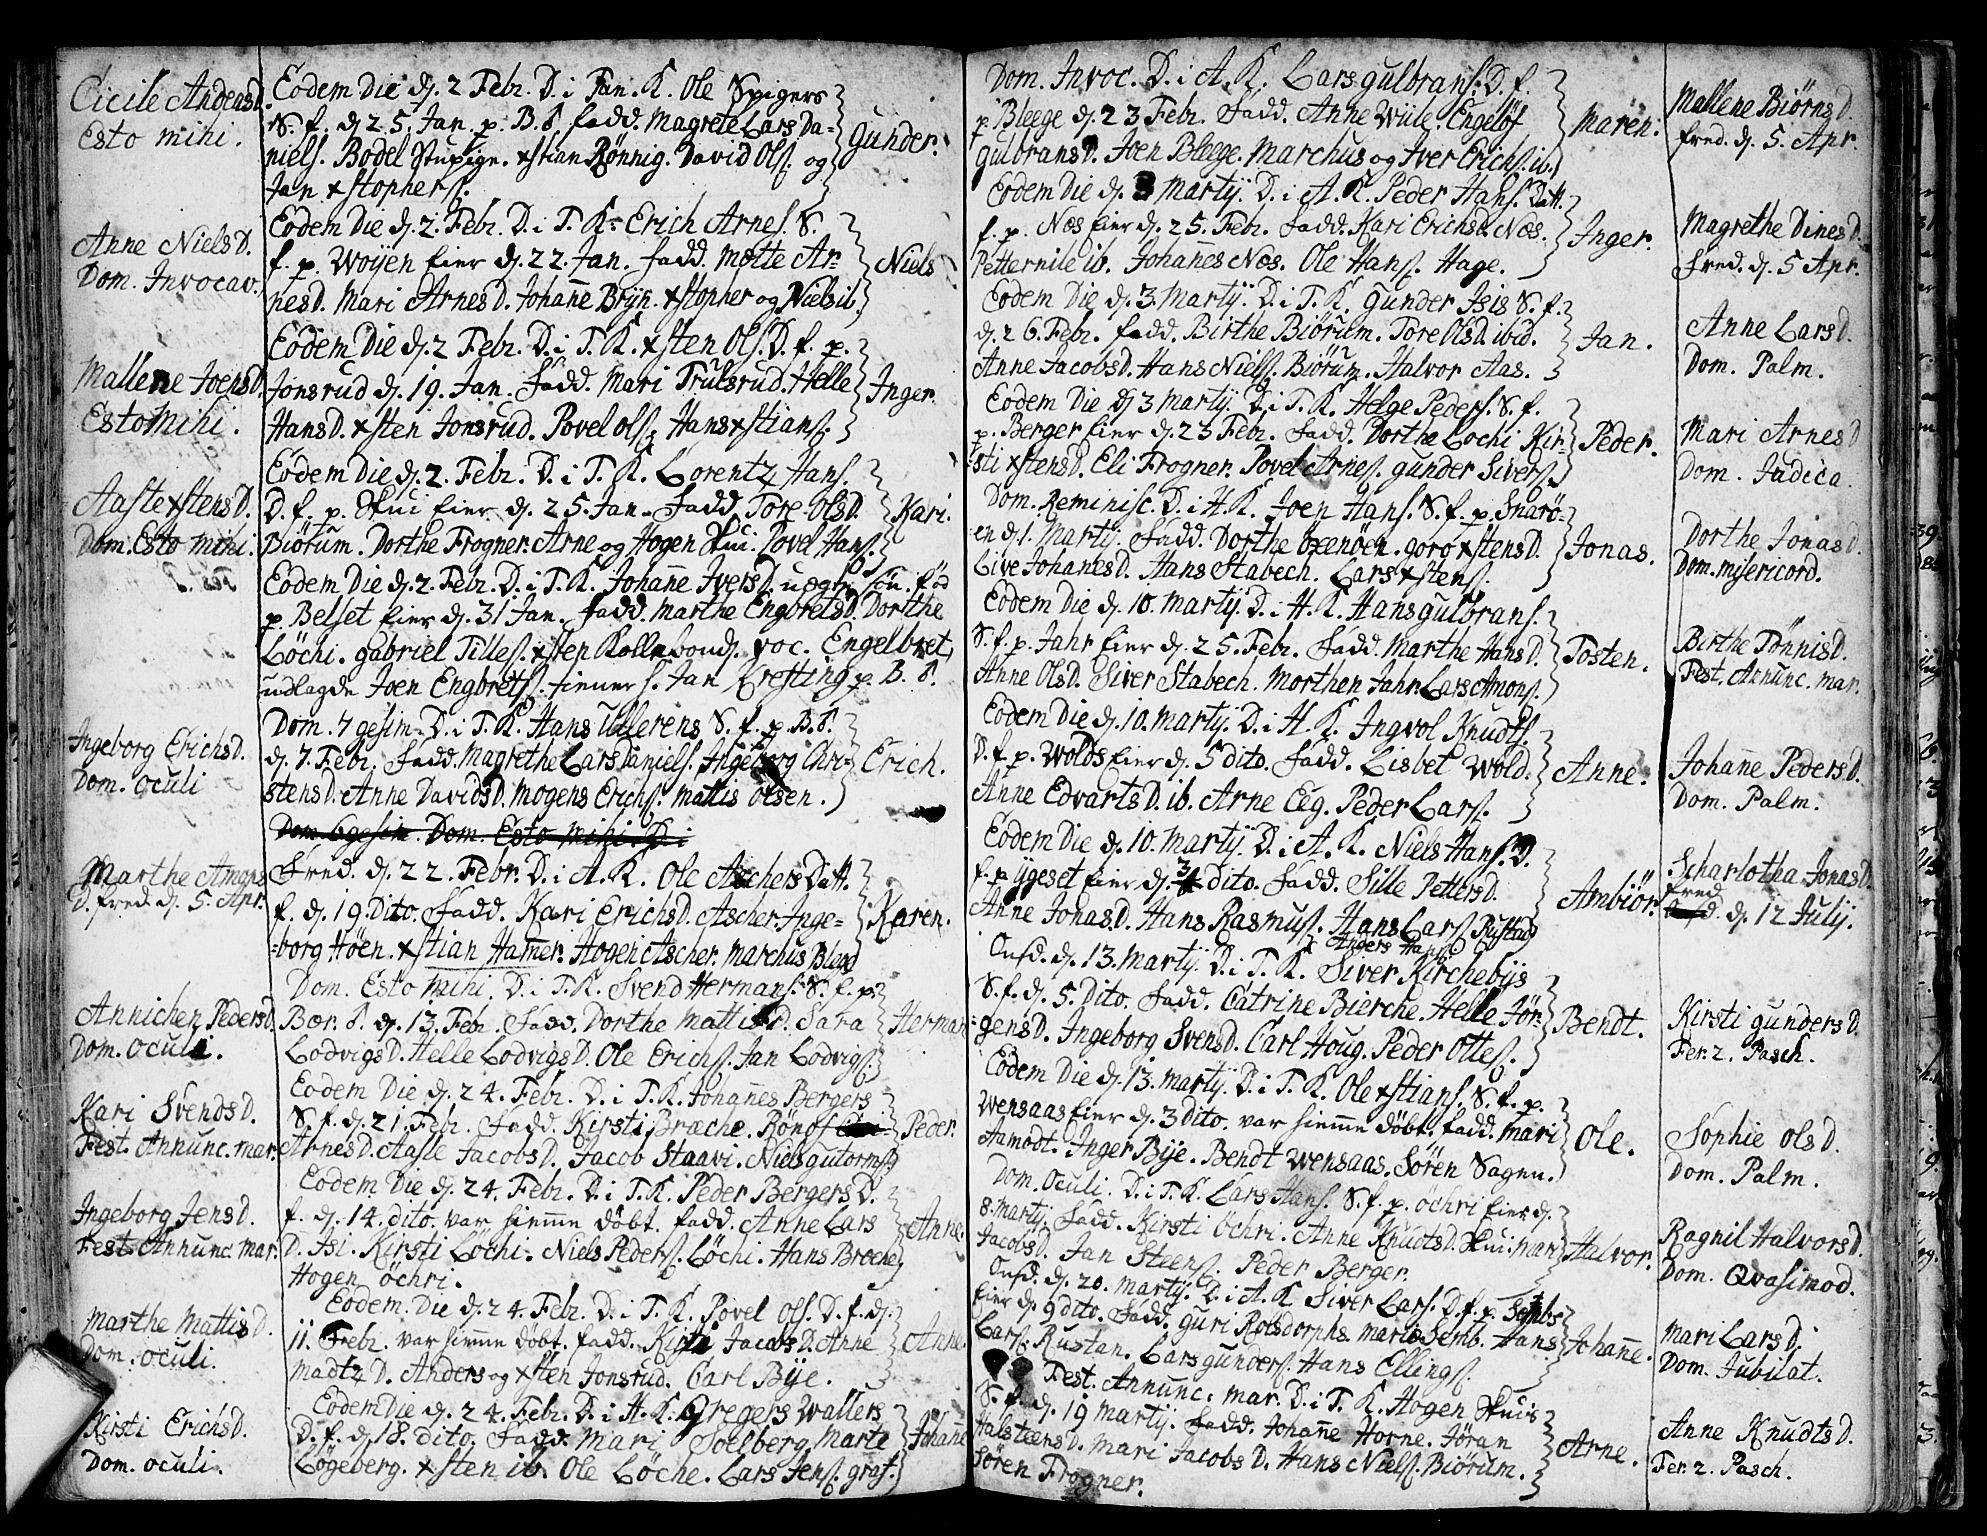 Cicile Andersd.
Esto mihi.
Eodem Die d. 2 Febr. D. i Tan. K. Ole Spigers
S. f. d. 25. Jan. p. B. fadd. Magrete Lars Da-
niels. Bodel Stupign. xstian Rönnig. David Ols. og
Jan xstophers.
Gunder.
Anne NielsD.
Dom. Invocav.
Eodem Die d. 2. Febr. D. i T. K. Erich Arnes. S.
f. p. Woÿen Eier d. 22. Jan. fadd. Mette Ar-
nesd. Mari ArnesD. Johañe Brÿn. xstopher og Niels ib.
Niels
Mallene JoensD.
Esto Mihi.
Eodem Die d. 2 Febr. D. i T. K. xsten Ols. D. f. p.
Jonsrud d. 19. Jan. Fadd. Mari Trulsrud. Helle
HansD. xsten Jonsrud. Povel Ols. Hans xstians.
Inger.
Aaste xstensD.
Dom. Esto Mihi.
Eodem Die d. 2. Febr. D. i T. K. Lorentz Hans.
D. f. p. Skui Eier d. 25. Jan. Fadd. Tore OlsD.
Biörum. Dorthe Frogner. Arne og Hogen Skui. Povel Hans.
Kari.
Eodem Die d. 2. Febr. D. i T. K. Johañe IversD. uegte Sön. föd
p. Belset Eier d. 31 Jan. fadd. Marthe EngbretsD. Dorthe
Löchi. Gabriel Tilles. xsten Kollebond. voc. Engelbret,
udlagde Joen Engbrets. tiener h. Jan Krefting p. B.
Ingeborg ErichsD.
Dom. Oculi
Dom. 7 gesim. D. i T. K. Hans Ullerens S. f. p. B.
d. 7. Febr. Fadd. Magrethe Lars Daniels. Ingeborg Chri-
stensD. Anne DavidsD. Mogens Erichs. Mattis Olsen.
Erich.
Dom. 6gesim. Dom. Esto Mihi. D. i
Marthe Amons
D. fred. d. 5. Apr.
Fred. d. 22. Febr. D. i A. K. Ole Aschers Datt.
f. d. 19. Dito. Fadd. Kari ErichsD. Ascher. Inge-
borg Höen. xstian Hamer. Hogen Ascher. Marchus Blend
Karen.
Annichen PedersD.
Dom. Oculi.
Dom. Esto Mihi. D. i T. K. Svend Hermans. S. f. p.
Bær. d. 13. Febr. Fadd. Dorthe MattisD. Sara
LodvigsD. Helle LodvigsD. Ole Erichs. Jan Lodvigs.
Herman
Kari SvendsD.
Fest. Annunc. Mar.
Eodem Die d. 24. Febr. D. i T. K. Johañes Bergers
S. f. d. 21. Febr. Fadd. Kirsti Bræche. Rönof
ArnesD. Aasle JacobsD. Jacob Staavi. Niels Gutorms.
Peder.
Ingeborg JensD.
Fest. Annunc. Mar.
Eodem Die d. 24. Febr. D. i T. K. Peder Bergers D.
f. d. 14. dito. var hieme döbt. fadd. Anne Lars
D. Isi. Kirsti Löchi. Niels Peders. Löchi. Hans Breche
Hogen Öchri.
Anne.
Marthe MattisD.
Dom. Oculi.
Eodem Die d. 24. Febr. D. i T. K. Povel Ols. D. f. d.
11. Febr. var hieme döbt. fadd. Kirsti JacobsD. Anne
Madtz D. Anders og xsten Jonsrud. Carl Bÿe.
Anne.
Kirsti ErichsD.
Dom. Oculi.
Eodem Die d. 24. Febr. D. i H. K. Gregers Wallers
D. f. d. 18. dito. Fadd. Mari Solberg. Marte
Lögeberg. xsten ib. Ole Löche. Lars Jens. graf.
Johañe
Dom. Invoc. D. i A. K. Lars Gulbrans. D. f.
p. Bleege d. 23 Febr. Fadd. Anne Wiile. Engelöf
GulbransD. Joen Bleege. Marchus og Iver Erichs. ib.
Maren.
Mallene BiörnsD.
fred. d. 5. Apr.
Eodem Die d. 3 Martÿ. D. i A. K. Peder Hans. Datt.
f. p. Næs Eier d. 25. Febr. Fadd. Kari Erichsd. Næs.
Petternile ib. Johañes Næs. Ole Hans. Hage.
Inger.
Magrethe DinesD.
Fred. d. 5 Apr.
Eodem Die d. 3. Martÿ. D. i T. K. Gunder Isis S. f.
d. 26. Febr. fadd. Birthe Biörum. Tore OlsD. ibid.
Anne JacobsD. Hans Niels. Biörum. Halvor Aas.
Jan.
Anne LarsD.
Dom. Palm.
Eodem Die d. 3 Martÿ. D. i T. K. Helge Peders. S. f.
p. Berger Eier d. 23 Febr. Fadd. Dorthe Löchi. Kir-
sti xstensD. Eli Frogner. Povel Arnes. Gunder Sivers.
Peder.
Mari ArnesD
Dom. Judica.
Dom. Reminisc. D. i H. K. Joen Hans. S. f. p. Snarö-
en d. 1. Martÿ. Fadd. Dorthe Öxenöen. Goro xstensD.
Live JohanesD. Hans Stabech. Lars xstens.
Jonas.
Dorthe JonasD.
Dom. Misericord.
Eodem Die d. 10. Martÿ. D. i H. K. Hans Gulbrans.
S. f. p. Jahr Eier d. 25. Febr. Fadd. Marthe HansD.
Anne OlsD. Siver Stabech. Morthen Jahr. Lars Amons.
Tosten.
Birthe TönnisD.
Fest. Annunc. Mar.
Eodem Die d. 10. Martÿ. D. i H. K. Ingvol Knudts.
D. f. p. Wolds Eier d. 5 dito. Fadd. Lisbet Wold.
Anne EdvartsD. ib. Arne Eeg. Peder Lars.
Anne.
Johañe PedersD.
Dom. Palm.
Eodem Die d. 10. Martÿ. D. i A. K. Niels Hans. D.
f. p. Ÿgeset Eier d. 3 dito. Fadd. Sille PettersD.
Anne JonasD. Hans Rasmus. Hans Lars. Rustad
Anders Hans.
Ambiör.
Scharlotha JonasD.
fred
d. 12 Julÿ.
Onsd. d. 13. Martÿ. D. i T. K. Siver Kirchebÿs
S. f. d. 5. Dito. Fadd. Catrine Bierche. Helle Jör-
gensD. Ingeborg SvensD. Carl Houg. Peder Ottes.
Bendt.
Kirsti GundersD.
Fer. 2. Pasch.
Eodem Die d. 13. Martÿ. D. i T. K. Ole xstians. S. f. p.
Wensaas Eier d. 3 Dito. var hieme döbt. fadd. Mari
Aamodt. Inger Bÿe. Bendt Wensaas. Sören Sagen.
Ole.
Sophie OlsD.
Dom. Palm.
Dom. Oculi. D. i T. K. Lars Hans. S. f. p. Ochri Eier d.
8. Martÿ. Fadd. Kirsti Öchri. Anne KnudtsD. Skui. Mari
JacobsD. Jan Steens. Peder Berger.
Halvor.
Ragnil HalvorsD.
Dom. Qvasimod.
Onsd. d. 20. Martÿ. D. i A. K. Siver Lars. D. f. p. Sembs
Eier d. 9 dito. Fadd. Guri Rolsdorphs. Mari Semb. Hans
Lars. Rustan. Lars Gunders. Hans Ellings.
Johañe.
Mari LarsD.
Dom. Jubilat.
Fest. Annunc. Mar. D. i T. K. Hogen Skuis
S. f. d. 19 Martÿ. Fadd. Johañe Horne. Jöran
HalsteensD. Mari JacobsD. Hans Niels. Biörum.
Sören Frogner.
Arne.
Anne KnudtsD.
Fer. 2. Pasch.